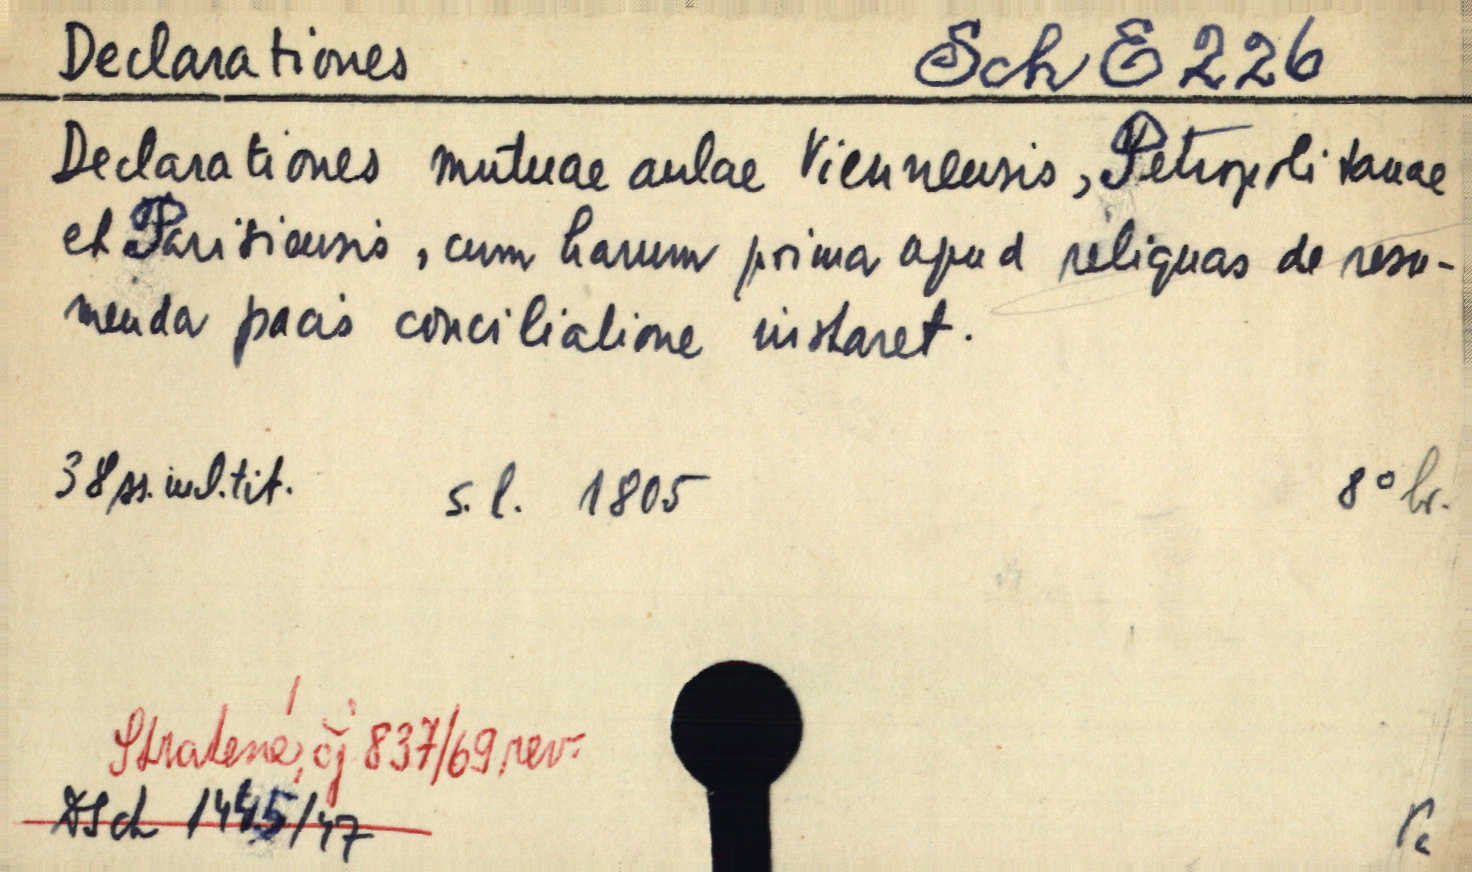 Declarationes Sch E 226
Declarationes mutuae aulae Viennensis, Petropolitanae
et Parisiensis, cum harum prima apud reliquas de resu-
menda pacis conciliatione instaret.
38 ss. incl. tit. s. l. 1805 8° br.
Stratené, čj 837/69 rev.
Sch 1445/47